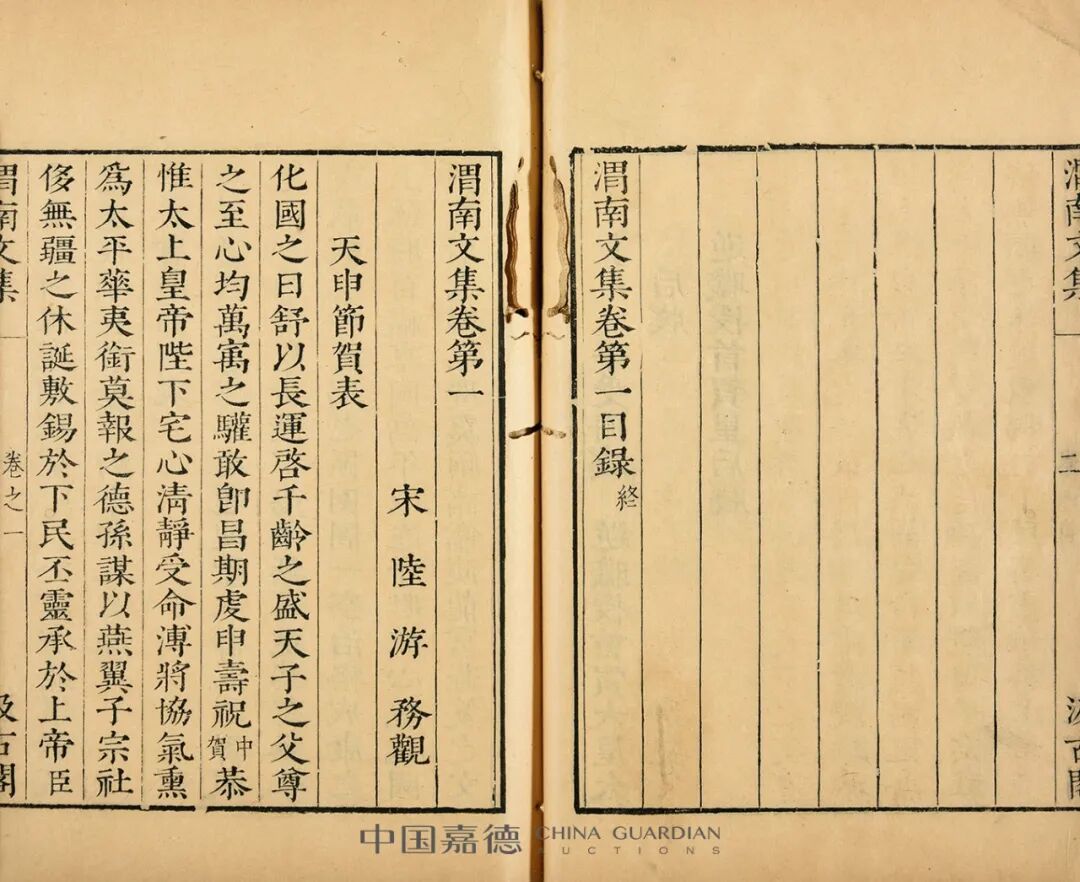 渭南文集
二
汲古閣
渭南文集卷第一目錄終
渭南文集卷第一
宋陸游務觀
天申節賀表
化國之日舒以長運啓千齡之盛天子之父尊
之至心均萬㝢之驩敢卽昌期虔申壽祝中賀恭
惟太上皇帝陛下宅心淸靜受命溥將協氣熏
爲太平華夷銜莫報之德孫謀以燕翼子宗社
侈無疆之休誕敷錫於下民丕靈承於上帝臣
渭南文集
卷之一
汲古閣
中国嘉德 CHINA GUARDIAN AUCTIONS